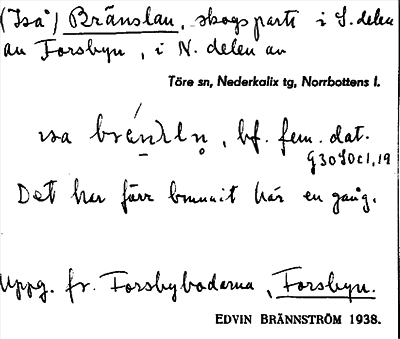 (Iså) Brånslan, skogsparti i S. delen
av Forsbyn, i N. delen av
Töre sn, Nederkalix tg, Norrbottens l.
bf. fem. dat.
Det har förr brunnit här en gång.
Uppg. fr. Forsbyboderna, Forsbyn.
EDVIN BRÄNNSTRÖM 1938.